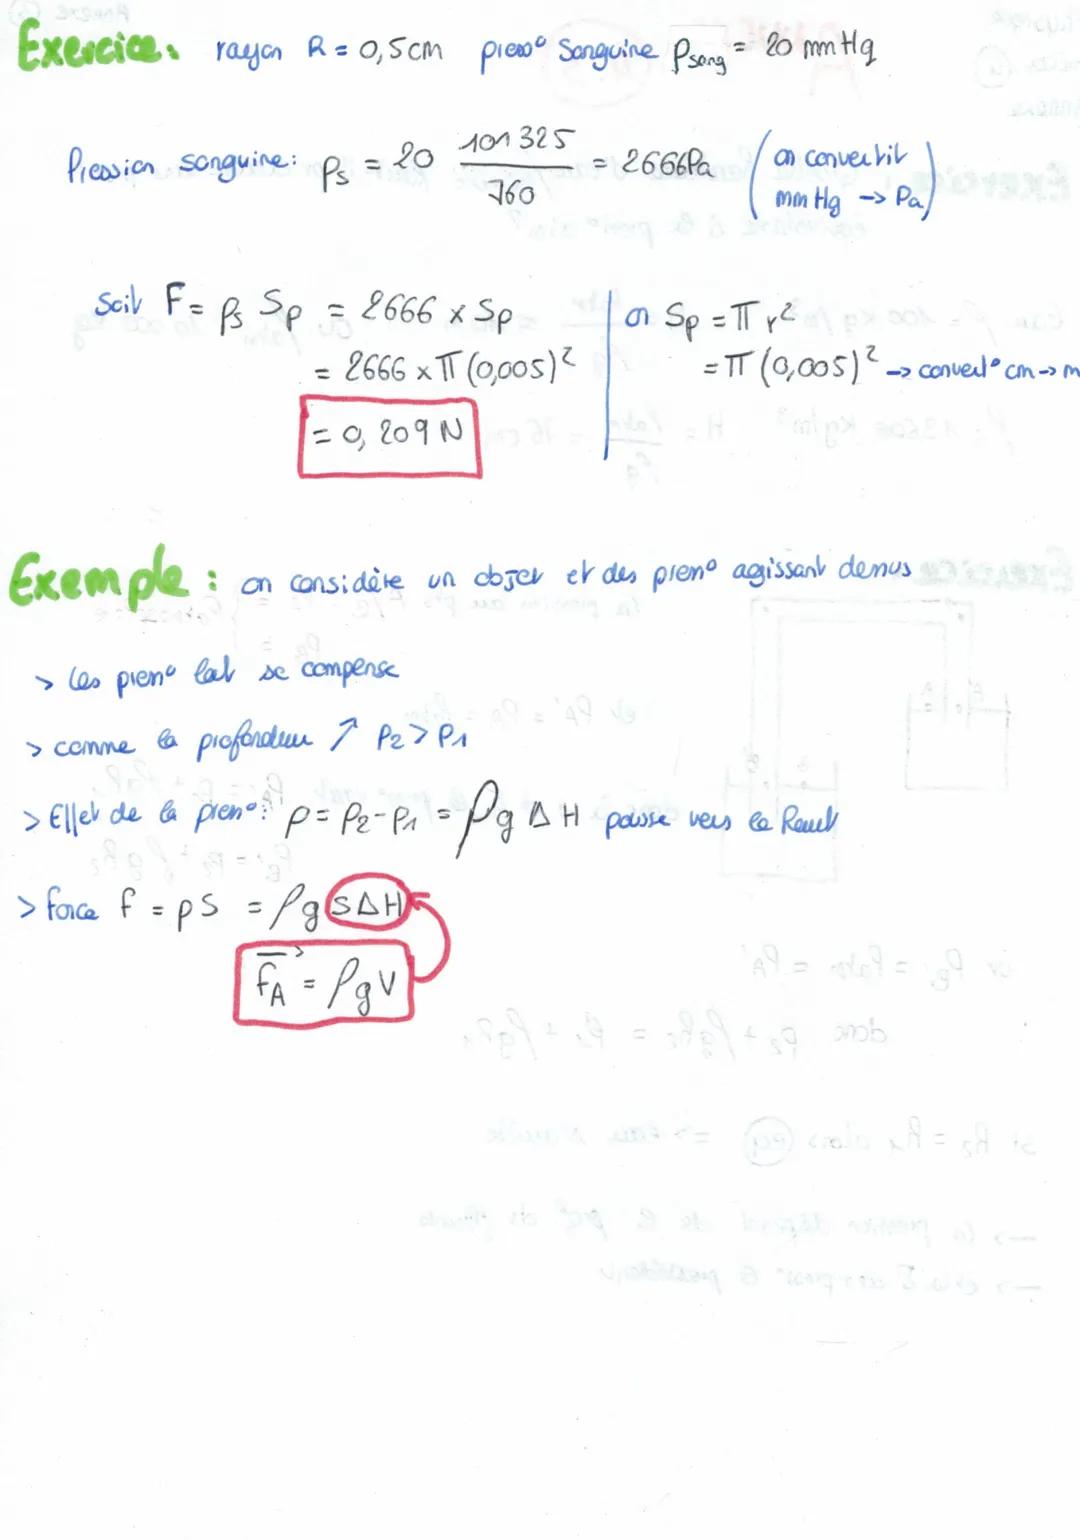 Exercice: rayon R = 0,5cm press° Sanguine Psang = 20 mmHg
Pression sanguine: Ps = 20 101 325 / 760 = 2666Pa (on convertit mmHg -> Pa)
Soit F = Ps Sp = 2666 x Sp
on Sp = π r²
= 2666 x π (0,005)²
= π (0,005)² -> convert° cm -> m
= 0,209 N
Exemple : on considère un objet et des press° agissant dessus
> Les press° lat se compense
> comme la profondeur ↗ P2 > P1
> Effet de la press°: p = P2 - P1 = ρg ΔH pousse vers le Haut
> force f = pS = ρg SΔH
fA = ρgV